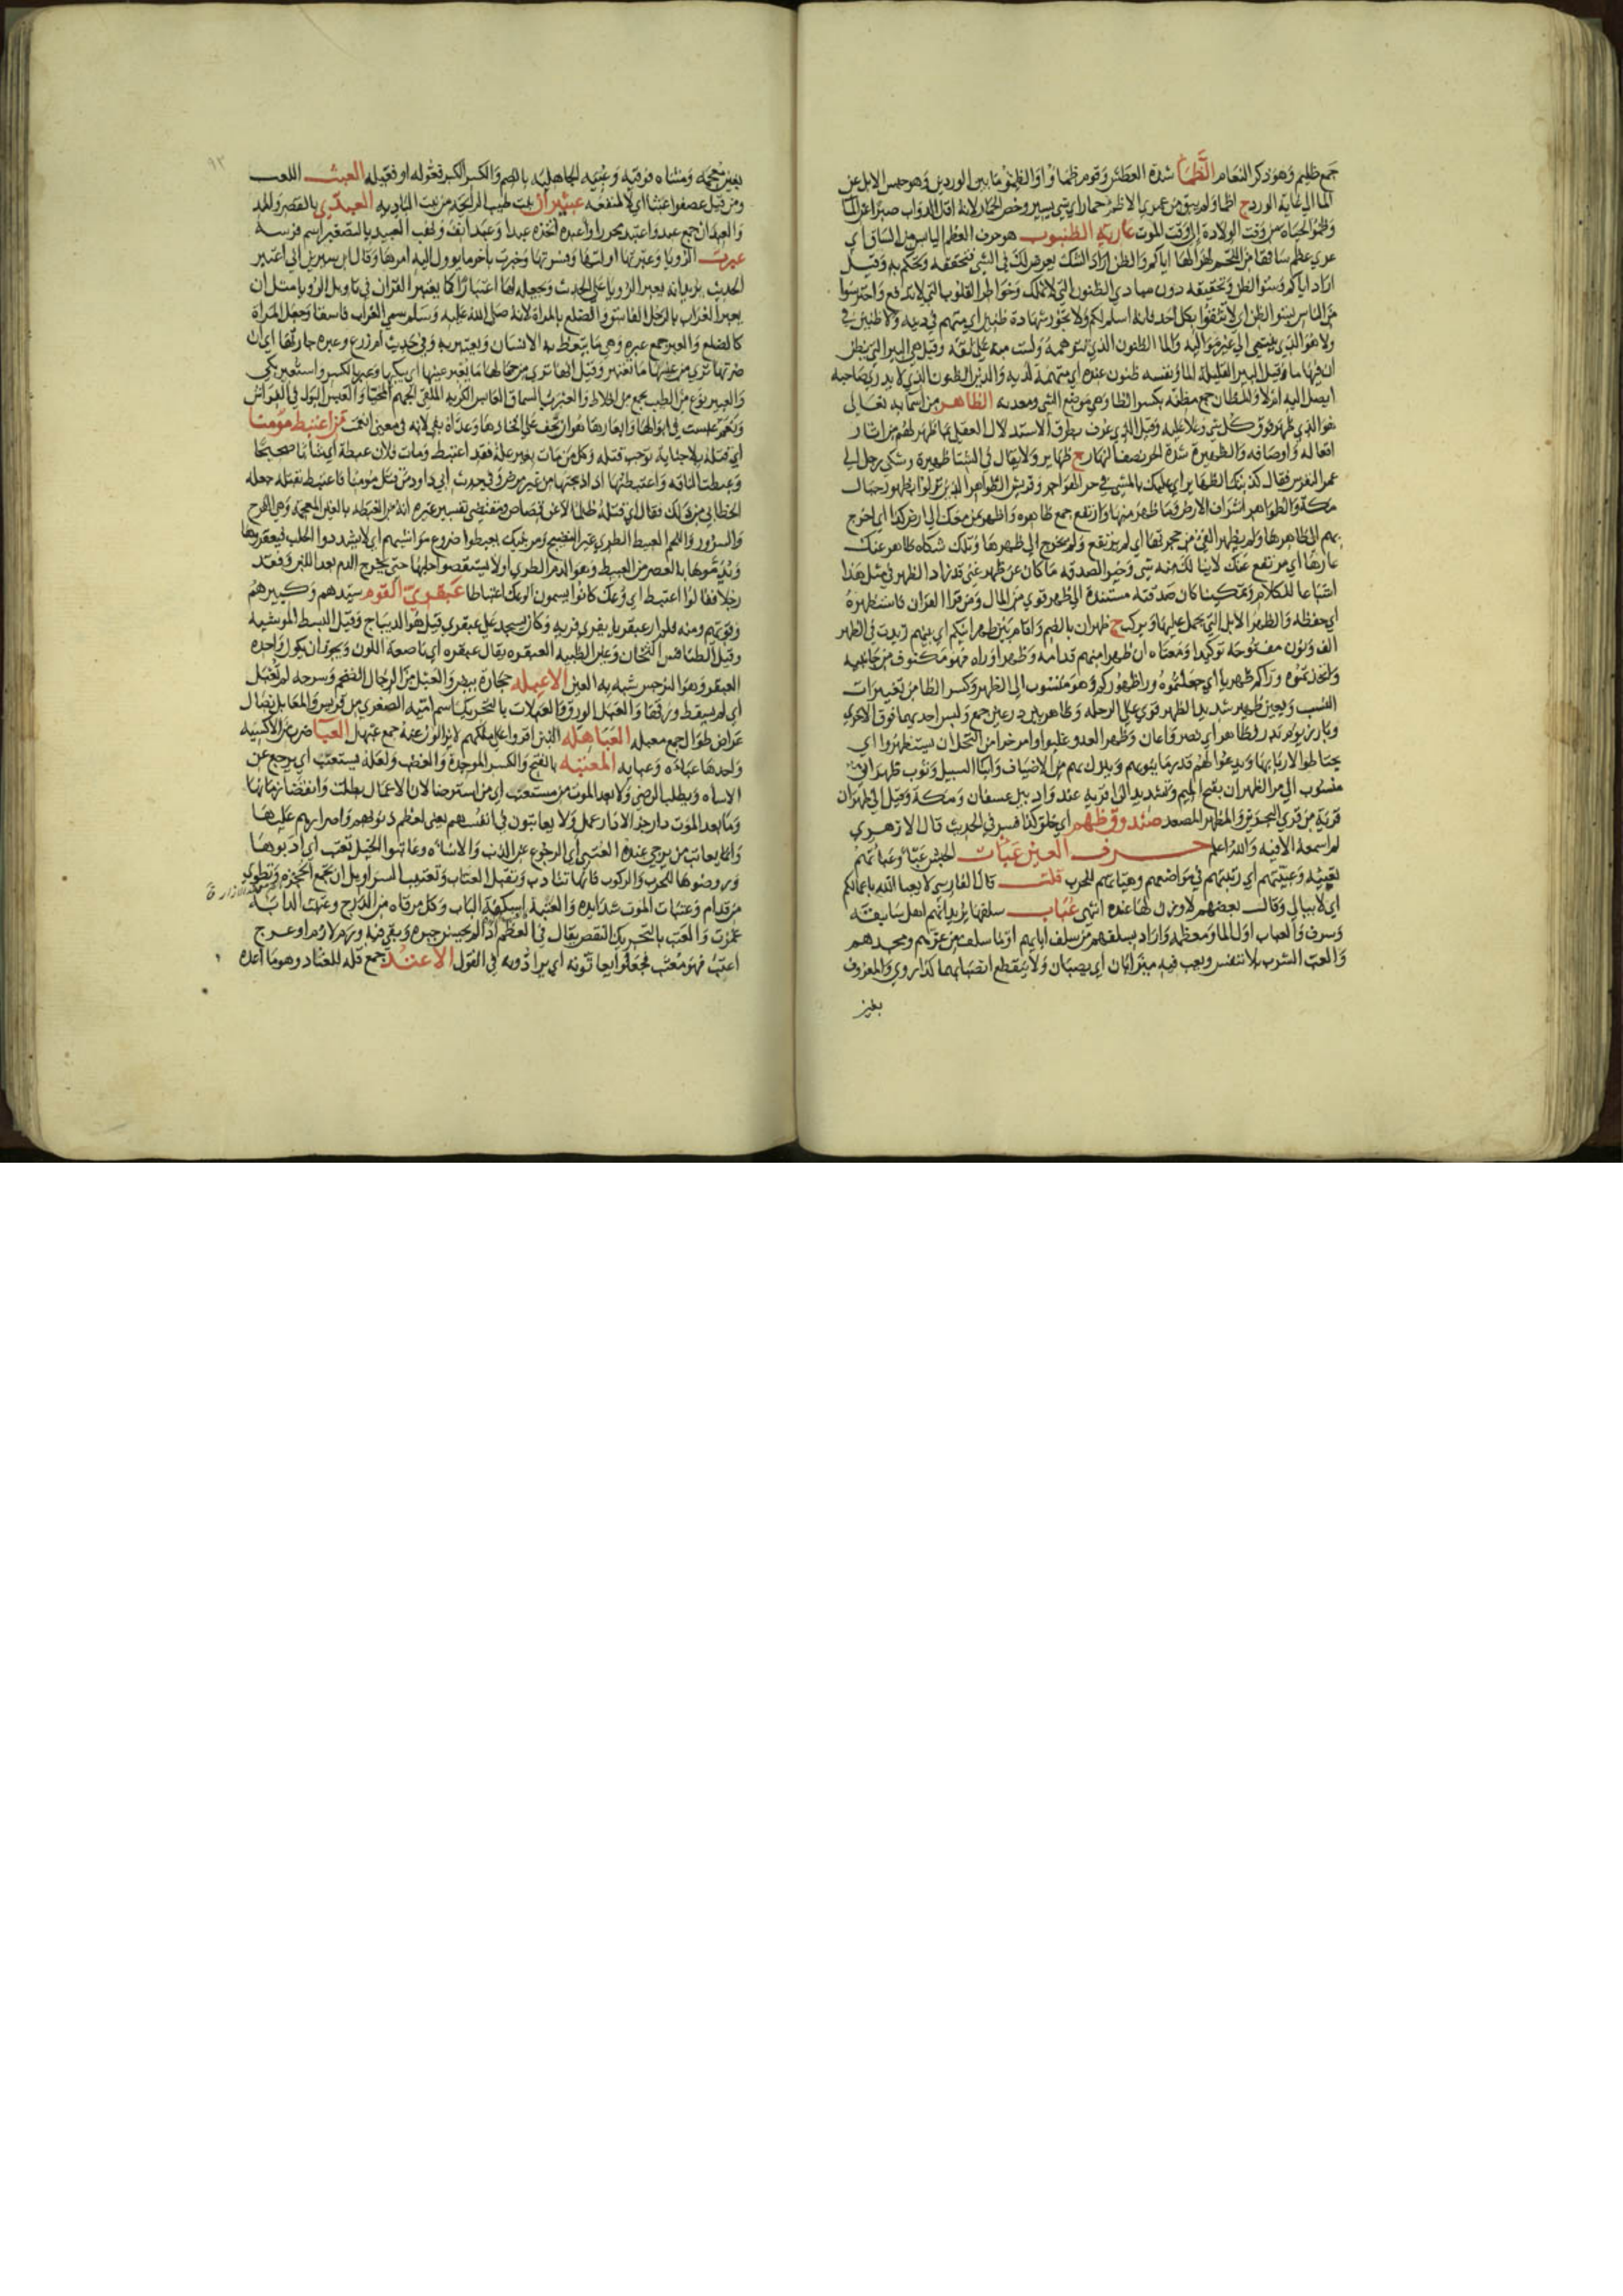 جمع ظليم وهو ذكر النعام الظمأ شدة العطش وقوم ظماء واوالظمؤ ما بين الوردين وهو حبس الابل عن
الما الى غاية الورد ج اظما ولم يبق من عمري الا ظمؤ حمار اي شي يسير وخص الحمار لانه اقل الدواب صبرا عن الما
وظمؤ الحياة من وقت الولادة الى وقت الموت عارية الظنبوب هو حرف العظم اليابس من الساق اي
عري عظم ساقها من اللحم لهزالها اياكم والظن اراد الشك يعرض لك في الشي فتحققه وتحكم به وقيل
اراد اياكم وسوء الظن وتحقيقه دون مبادي الظنون التي لا تملك وخواطر القلوب التي لا تدفع واحترسوا
من الناس بسو الظن اي لا تثقوا بكل احد فانه اسلم لكم ولا تجوز شهادة ظنين اي متهم في دينه ولا ظنين في
ولا هو الذي ينتمي الى غير مواليه والما الظنون الذي تتوهمه ولست منه على ثقة وقيل هي البير التي يظن
ان فيها ما وقيل البير القليلة الما ونفسه ظنون عنده اي متهمة لديه والدين الظنون الذي لا يدري صاحبه
ايصل اليه ام لا والمظان جمع مظنه بكسر الظا وهي موضع الشي ومعدنه الظاهر من اسمايه تعالى
هو الذي ظهر فوق كل شي وعلا عليه وقيل الذي عرف بطرق الاستدلال العقلي بما ظهر لهم من اثار
افعاله واوصافه والظهيرة شدة الحر نصف النهار ج ظهاير ولا يقال في الشتا ظهيرة وشكى رجل الى
عمر النقرس فقال كذبتك الظهاير اي عليك بالمشي في حر الهواجر وقريش الظواهر الذين نزلوا بظهور جبال
مكة والظواهر اشراف الارض وما ظهر منها وارتفع جمع ظاهره واظهر بمن معك الى ارض كذا اي اخرج
بهم الى ظاهرها ولم يظهر الفي من حجرتها اي لم يرتفع ولم يخرج الى ظهرها وتلك شكاه ظاهر عنك
عارها اي مرتفع عنك لا ينالك منه شي وخير الصدقه ما كان عن ظهر غنى قد يزاد الظهر في مثل هذا
اشباعا للكلام وتمكينا كان صدقته مستندة الى ظهر قوي من المال ومن قرا القران فاستظهره
اي حفظه والظهر الابل التي يحمل عليها ويركب ج ظهران بالضم واقام بين ظهرانيكم اي بينهم زيدت في الظهر
الف ونون مفتوحة توكيدا ومعناه ان ظهرا منهم قدامه وظهرا وراه فهو مكنوف من جانبيه
واتخذتموه وراكم ظهريا اي جعلتموه ورا ظهوركم وهو منسوب الى الظهر وكسر الظا من تغييرات
النسب وبعير ظهير شديد الظهر قوي على الرحلة وظاهر بين درعين جمع ولبس احديهما فوق الاخرى
وبارز يوم بدر وظاهر اي نصر واعان وظهر العدو غلبوا وامر خراص النخل ان يستظهروا اي
يحتاطوا لاربابها ويدعوا لهم قدر ما ينوبهم وينزل بهم من الاضياف وابنا السبيل وثوب ظهراني
منسوب الى مر الظهران بفتح الميم وتشديد الرا قرية عند واد بين عسفان ومكة وقيل الى ظهران
قرية من قرى البحرين والمظهر المصعد صندوق ظهم اي خلق كذا فسر في الحديث قال الازهري
لم اسمعه الا فيه والله اعلم حرف العين عبات الجيش عبا وعباتهم
تعبية وعبيتهم اي رتبتهم في مواضعهم وهياتهم للحرب قلت قال الفارسي لا يعبا الله باعمالكم
اي لا يبالي وقال بعضهم لا وزن لها عنده انتهى عباب سلفها يريد انهم اهل سابقه
وشرف والعباب اول الما ومعظمه واراد بسلفهم من سلف ابايهم او ما سلف من عزهم ومجدهم
والعب الشرب بلا تنفس ويعب فيه ميزابان اي يصبان ولا ينقطع انصبابهما كذا روي والمعروف
بغين
بغين معجمه ومثناه فوقيه وعبية الجاهلية بالضم والكسر الكبر فعوله او فعيله العبث اللعب
ومن قتل عصفورا عبثا اي لا لمنفعه عبيثران نبت طيب الرايحة من نبت البادية العبدي بالقصر والمد
والعبدان جمع عبد واعتبد محررا واعبده اتخذه عبدا وعبد انف ولعب العبيد بالتصغير اسم فرسه
عبرت الرويا وعبرتها اولتها وفسرتها وخبرت باخر ما يوول اليه امرها وقال ابن سيرين اني اعتبر
الحديث يريد انه يعبر الرويا على الحديث ويجعله لها اعتبارا كما يعتبر القران في تاويل الرويا مثل ان
يعبر الغراب بالرجل الفاسق والضلع بالمراة لانه صلى الله عليه وسلم سمى الغراب فاسقا وجعل المراة
كالضلع والعبر جمع عبره وهي ما يتعظ به الانسان ويعتبر به وفي حديث ام زرع وعبر جارتها اي ان
ضرتها ترى من عفتها ما تعتبر به وقيل انها ترى من جمالها ما يعبر عينها اي يبكيها وعبر بالكسر واستعبر بكى
والعبير نوع من الطيب يجمع من اخلاط والعبرب السماق العابس الكريه الملقى الجهم المحيا والعبس البول في الفراش
ونعم عبست في ابوالها وابعارها هو ان تجف على افخاذها وعداه بفي لانه في معنى انغمست من اعتبط مومنا
اي قتله بلا جناية توجب قتله وكل من مات بغير علة فقد اعتبط ومات فلان عبطة اي شابا صحيحا
وعبطت الناقه واعتبطتها اذا ذبحتها من غير مرض وفي حديث ابي داود من قتل مومنا فاعتبط بقتله جعله
الخطابي من ذلك فقال اي قتله ظلما لا عن قصاص ومقتضى تفسير غيره انه من الغبطه بالغين المعجمه وهي الفرح
والسرور واللحم العبيط الطري غير النضيج ومر بنيك لا يعبطوا ضروع مواشيهم اي لا يشددوا الحلب فيعقروها
ويدموها بالعصر من العبيط وهو الدم الطري او لا يستقصوا حلبها حتى يخرج الدم بعد اللبن وفقد
رجلا فقالوا اعتبط اي وعك كانوا يسمون الوعك اعتباطا عبقري القوم سيدهم وكبيرهم
وقويهم ومنه فلم ار عبقريا يفري فريه وكان يسجد على عبقري قيل هو الديباج وقيل البسط الموشيه
وقيل الطنافس الثخان وعين الظبيه العبقره يقال عبقره اي ناصعة اللون ويجوز ان يكون واحده
العبقر وهو النرجس شبه به العين الاعبله حجارة بيض والعبل من الرجال الضخم وسرحه لم تعبل
اي لم يسقط ورقها والعبل الورق والعبلات بالتحريك اسم امية الصغرى من قريش والمعابل نصال
عراض طوال جمع معبله العباهلة الذين اقروا على ملكهم لا يزالون عنه جمع عبهل العبا ضرب من الاكسيه
واحدها عباءه وعبايه المعتبه بالفتح والكسر الموجدة والغضب ولعله يستعتب اي يرجع عن
الاساه ويطلب الرضى ولا بعد الموت من مستعتب اي من استرضا لان الاعمال بطلت وانقضا زمانها
وما بعد الموت دار جزا لا دار عمل ولا يعاتبون في انفسهم يعني لعظم ذنوبهم واصرارهم عليها
وانما يعاتب من يرجى عنده العتبى اي الرجوع عن الذنب والاساه وعاتبوا الخيل تعتب اي ادبوها
وروضوها للحرب والركوب فانها تتادب وتقبل العتاب وتعتيب السراويل ان تجمع الحجزه وتطوى
من قدام وعتبات الموت شدايده والعتبة اسكفة الباب وكل مرقاه من الدرج وعتبت الدابة
غمزت والعتب بالتحريك النقص يقال في العظم اذا لم يحسن جبره وبقي فيه ورم لازم او عرج
اعتب فهو معتب فجعلوا يعاتونه اي يرادونه في القول الاعتد جمع قلة للعتاد وهو ما اعده